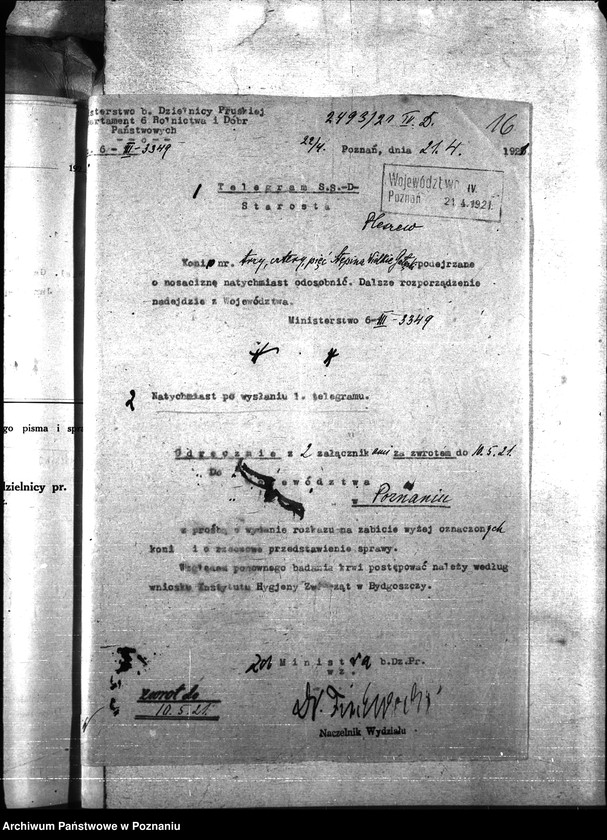 sterstwo b. Dzielnicy Pruskiej
partament 6 Rolnictwa i Dóbr
Państwowych
6 - III - 3349
2493/21 II. D.
16
22/4. Poznań, dnia 21.4. 1921
Województwo IV.
Poznań 21.4.1921.
1 Telegram S.S.-D-
Starosta
Pleszew
Konie nr. trzy, cztery, pięć podejrzane
o nosaciznę natychmiast odosobnić. Dalsze rozporządzenie
nadejdzie z Województwa.
Ministerstwo 6-III-3349
2 Natychmiast po wysłaniu 1. telegramu.
Odręcznie z 2 załącznikami za zwrotem do 10.5.21.
Do
Województwa
w Poznaniu
z prośbą o wydanie rozkazu na zabicie wyżej oznaczonych
koni i o rzeczowe przedstawienie sprawy.
Względem ponownego badania krwi postępować należy według
wniosku Instytutu Hygjeny Zwierząt w Bydgoszczy.
Minister b.Dz.Pr.
wz.
zwrot do
10.5.21.
Naczelnik Wydziału
go pisma i spr
dzielnicy pr.
Archiwum Państwowe w Poznaniu